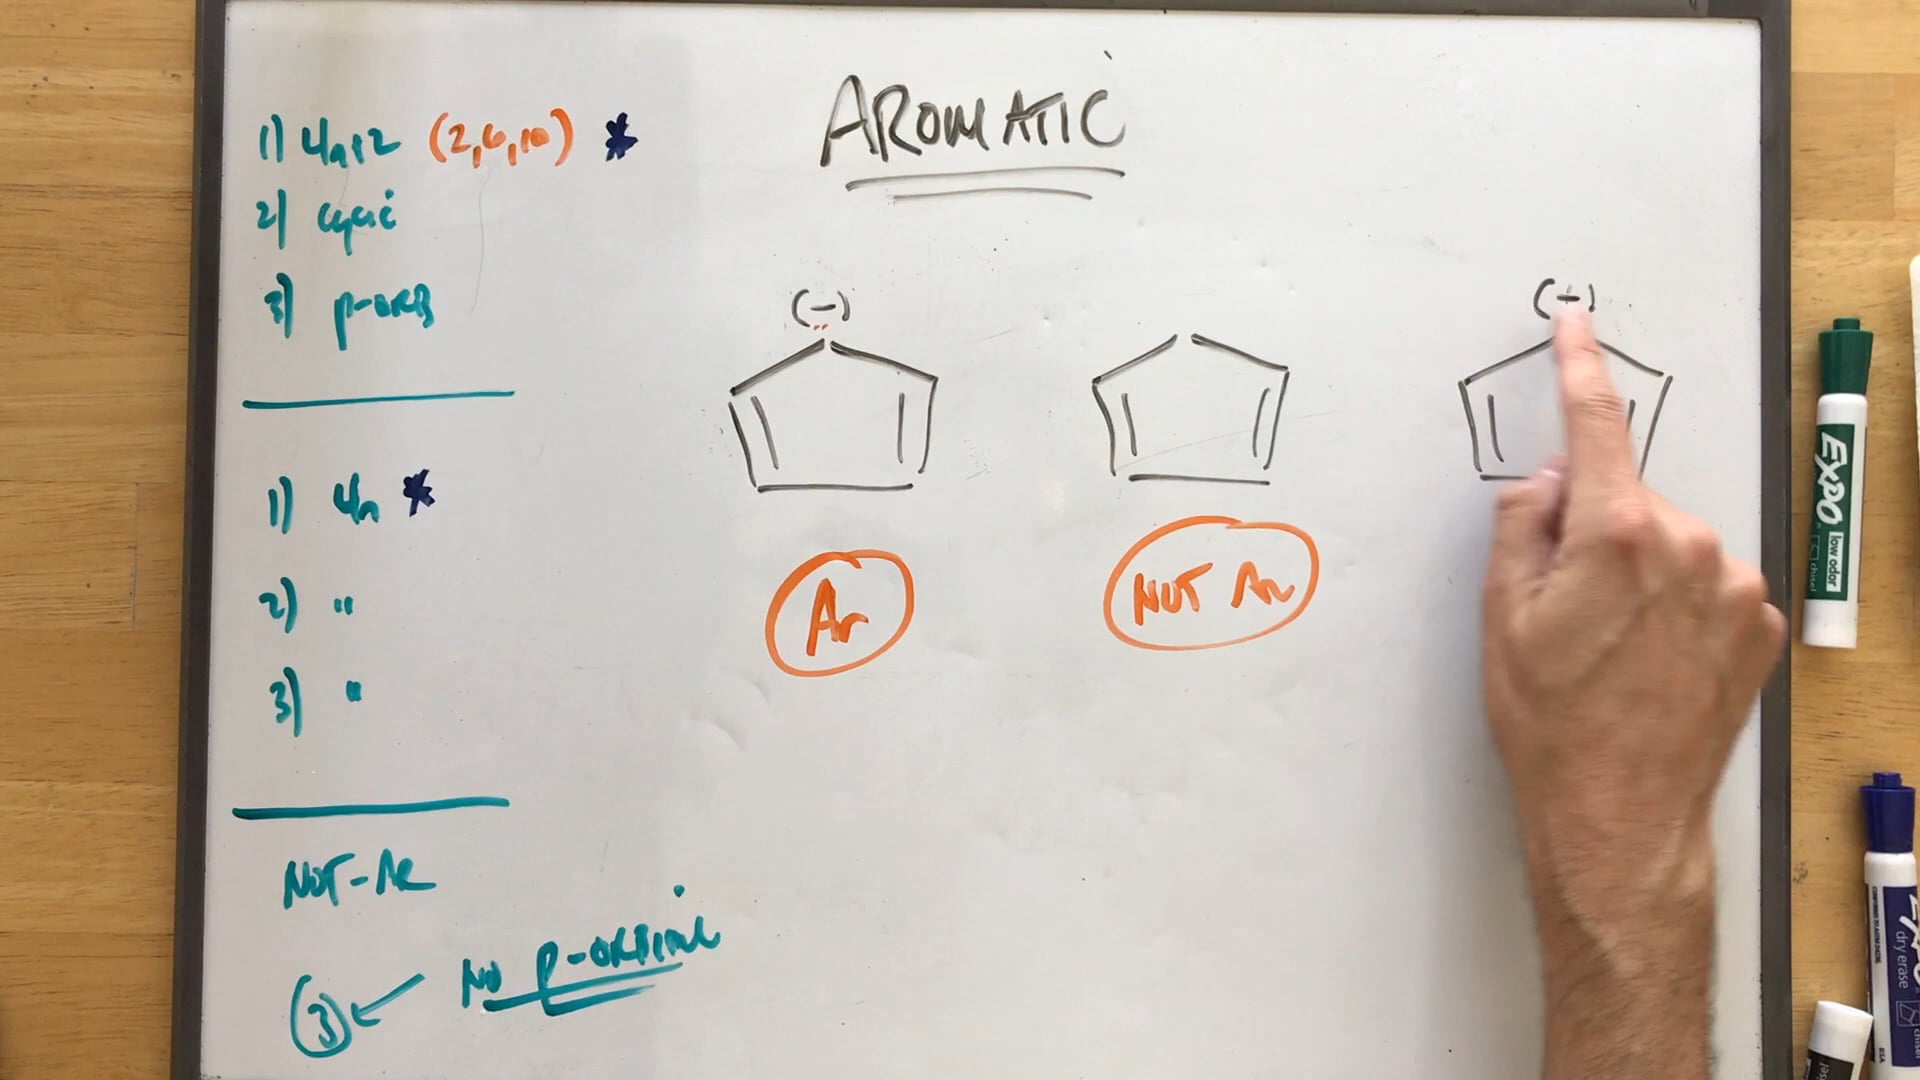 AROMATIC
1) 4n+2 (2,6,10) *
2) cyclic
3) p-ORB
(-)
(+)
Ar
NOT Ar
1) 4n *
2) "
3) "
NOT-Ar
NO P-ORBITAL
(3)
EXPO
low odor
chisel
EXPO
dry erase
chisel